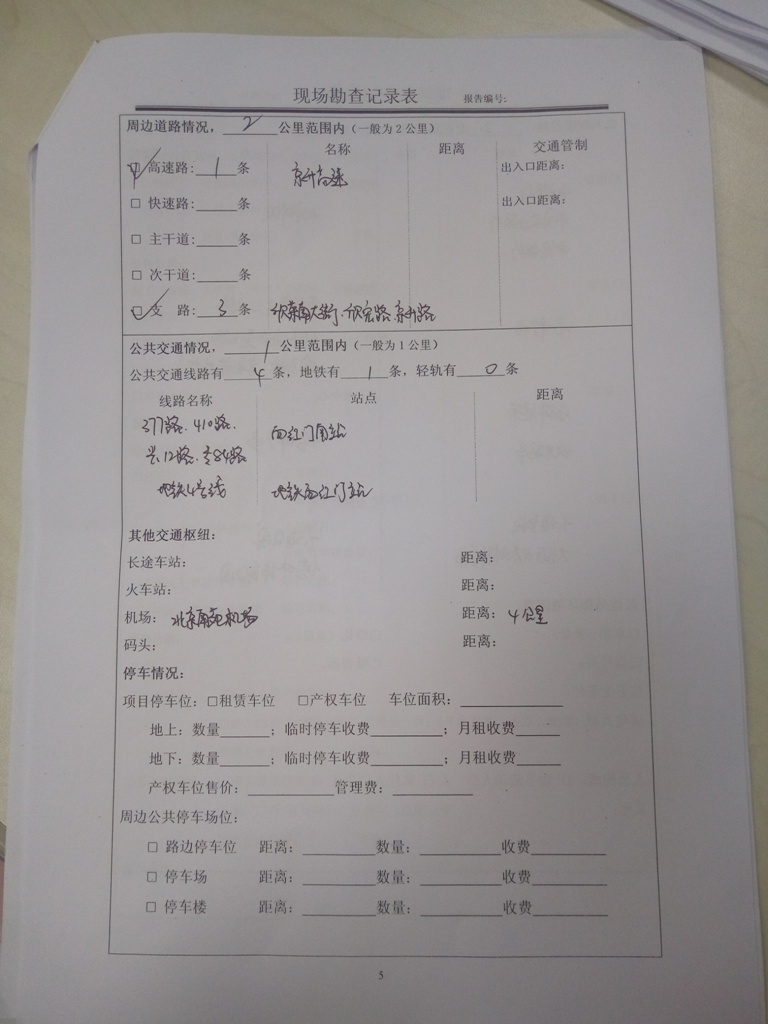 现场勘查记录表 报告编号:
周边道路情况，2公里范围内（一般为2公里）
名称 距离 交通管制
☑ 高速路:1条 京开高速 出入口距离:
□ 快速路:____条 出入口距离:
□ 主干道:____条
□ 次干道:____条
☑ 支 路:3条 欣荣南大街、欣宏路、京开路
公共交通情况，1公里范围内（一般为1公里）
公共交通线路有4条，地铁有1条，轻轨有0条
线路名称 站点 距离
377路、410路、
兴12路、专84路 西红门南站
地铁4号线 地铁西红门站
其他交通枢纽:
长途车站: 距离:
火车站: 距离:
机场: 北京南苑机场 距离: 4公里
码头: 距离:
停车情况:
项目停车位: □租赁车位 □产权车位 车位面积:____
地上: 数量____; 临时停车收费____; 月租收费____
地下: 数量____; 临时停车收费____; 月租收费____
产权车位售价: ____管理费: ____
周边公共停车场位:
□ 路边停车位 距离: ____数量: ____收费____
□ 停车场 距离: ____数量: ____收费____
□ 停车楼 距离: ____数量: ____收费____
5